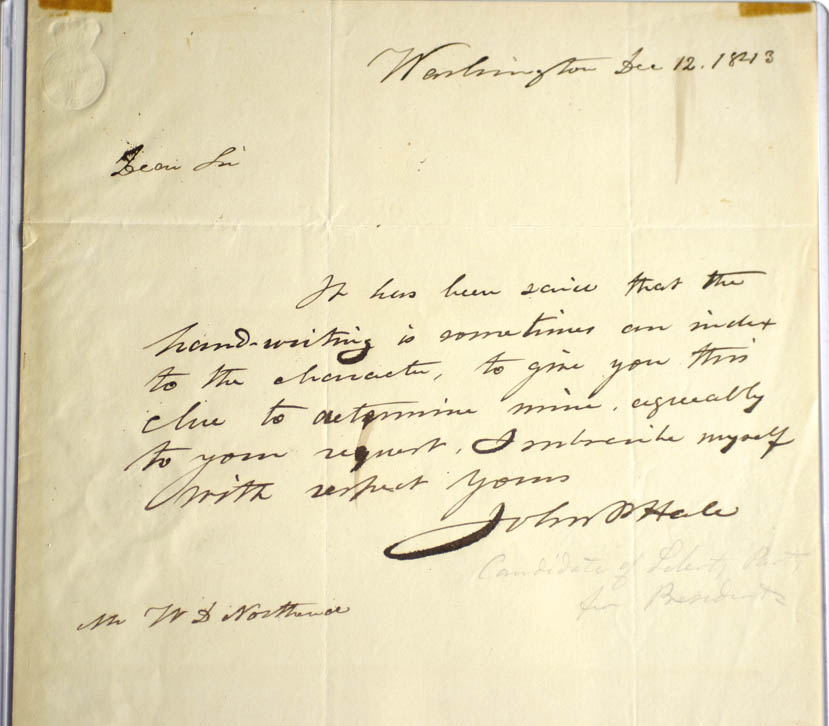 Washington Dec 12. 1843
Dear Sir
It has been said that the
hand-writing is sometimes an index
to the character, to give you this
clue to determine mine, agreeably
to your request, I subscribe myself
with respect yours
John P Hale
Candidate of Liberty Party
for President
Mr W D Northend